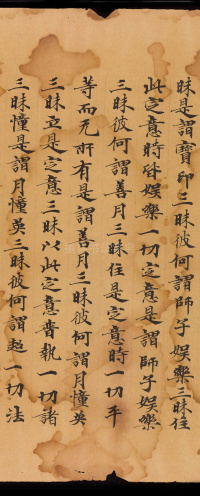 昧是謂寶印三昧彼何謂師子娛樂三昧住
此定意時能娛樂一切定意是謂師子娛樂
三昧彼何謂善月三昧住是定意時一切平
等而无所有是謂善月三昧彼何謂月幢英
三昧立是定意三昧以此定意普執一切諸
三昧幢是謂月幢英三昧彼何謂超一切法